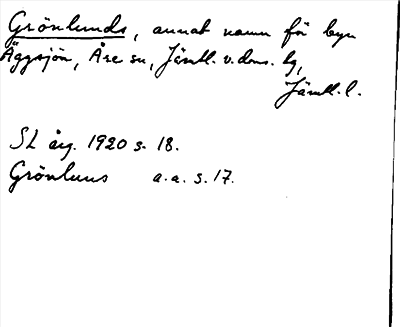 Grönlunds, annat namn för byn
Äggsjön, Åre sn, Jämtl. v. doms. hg,
Jämtl. l.
SL årg. 1920 s. 18.
Grönluns a.a. s. 17.